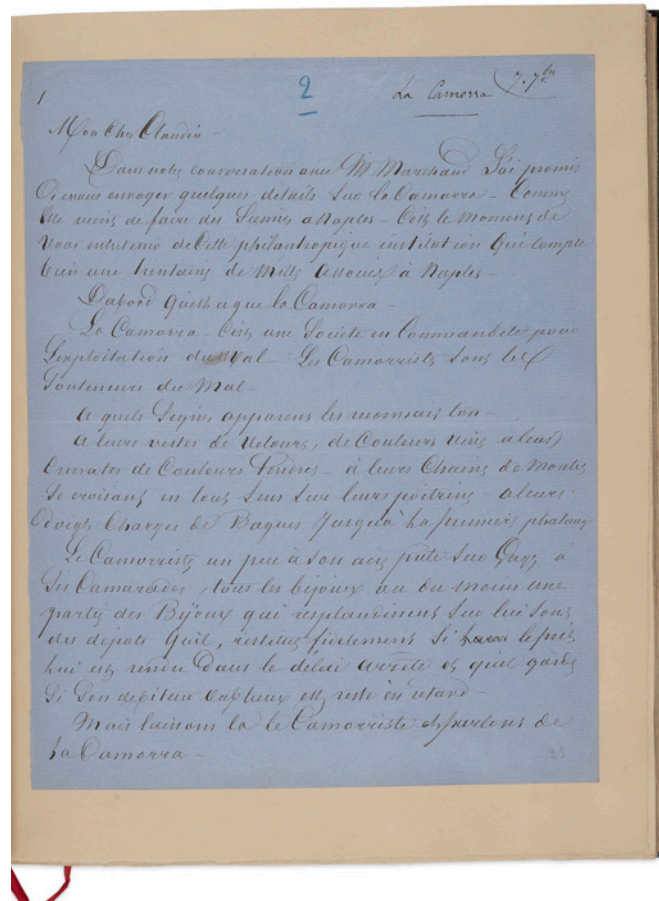 1
2
La Camorra
7. 7bre
Mon Cher Claudin -
Dans notre conversation avec Mr Marchand J'ai promis
De vous envoyer quelques détails Sur la Camorra - Comme
Elle vient de faire des Siennes a Naples - C'est le moment de
Vous entretenir de Cette philantropique institution Qui compte
bien une trentaine de Mille associés à Naples -
Dabord Qu'est ce que la Camorra -
La Camorra - C'est une Société en Commandite pour
L'exploitation du Mal - Les Camorristes Sont les
Souteneurs du Mal
A quels Signes apparens les reconnait ton -
A leurs vestes de Velours, de Couleurs vives a leurs
Cravates de Couleurs tendres - à leurs Chaines de Montres
Se croisant en tous Sens Sur leurs poitrines - a leurs
Doigts Chargés de Bagues Jusqu'à la premiere phalange
Le Camorriste un peu à Son aise prete Sur Gage à
Ses Camarades, tous les bijoux ou du moins une
partie des Bijoux qui resplandissent Sur lui Sont
des dépots Qu'il restitue fidelement Si le pret
lui est rendu Dans le délai arrêté et qu'il garde
Si Son debiteur est resté en retard -
Mais laissons la le Camorriste et parlons de
La Camorra -
33